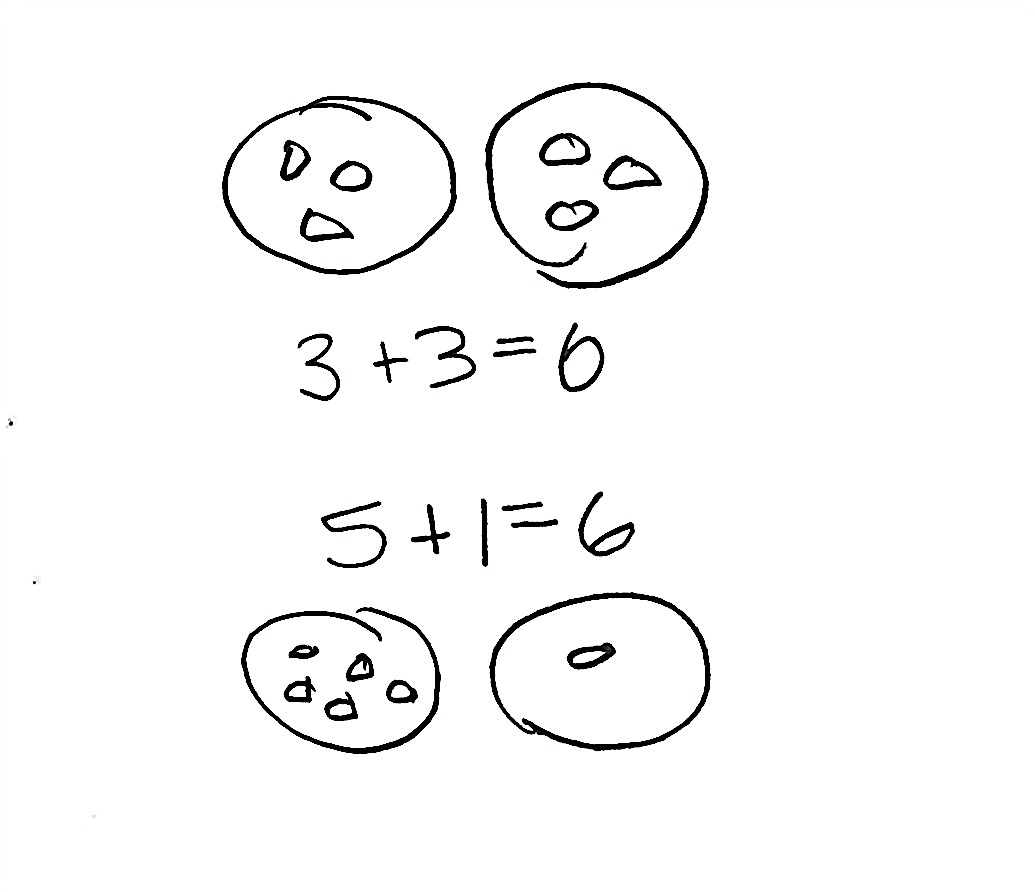 3 + 3 = 6
5 + 1 = 6